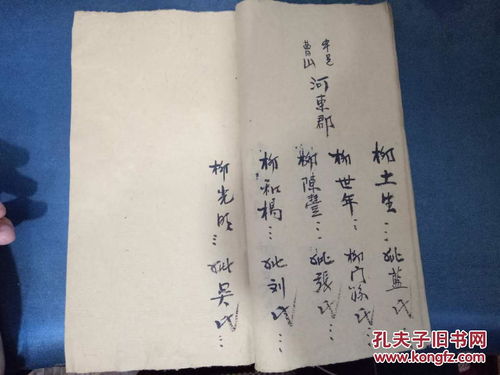 曹山
河東郡
柳土生…妣藍氏
柳世年…柳門孫氏
柳陳豐…妣張氏…
柳和楊…妣刘氏…
柳光明…妣吴氏…
孔夫子旧书网
www.kongfz.com